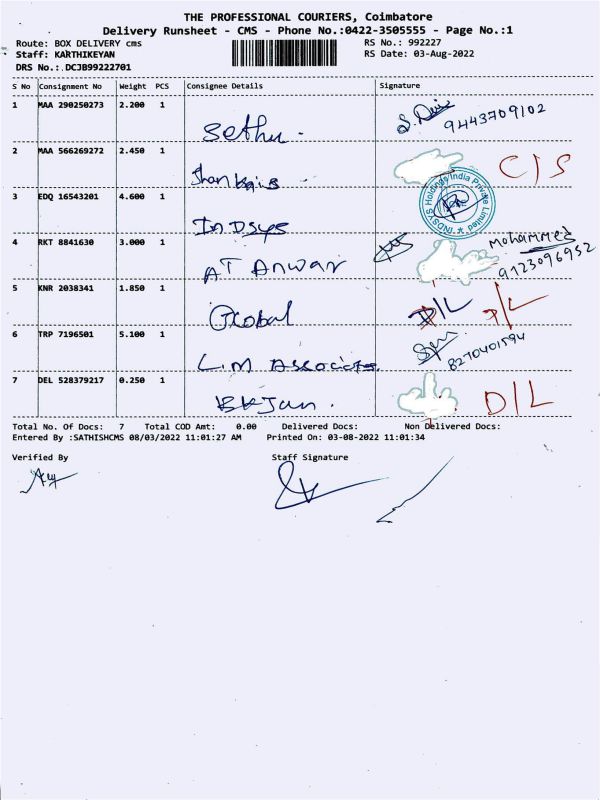 THE PROFESSIONAL COURIERS, Coimbatore
Delivery Runsheet - CMS - Phone No.:0422-3505555 - Page No.:1
Route: BOX DELIVERY cms RS No.: 992227
Staff: KARTHIKEYAN RS Date: 03-Aug-2022
DRS No.:.DCJB99222701
S No Consignment No Weight PCS Consignee Details Signature
1 MAA 290250273 2.200 1 Sethu. 9443709102
2 MAA 566269272 2.450 1 C/S
3 EDQ 16543201 4.600 1 INDsys INDSYS Holdings India Private Limited
4 RKT 8841630 3.000 1 AT Anwar Mohammed 9123096952
5 KNR 2038341 1.850 1 Global D/L D/L
6 TRP 7196501 5.100 1 L.M Associates. 8270401594
7 DEL 528379217 0.250 1 D/L
Total No. Of Docs: 7 Total COD Amt: 0.00 Delivered Docs: Non Delivered Docs:
Entered By :SATHISHCMS 08/03/2022 11:01:27 AM Printed On: 03-08-2022 11:01:34
Verified By Staff Signature